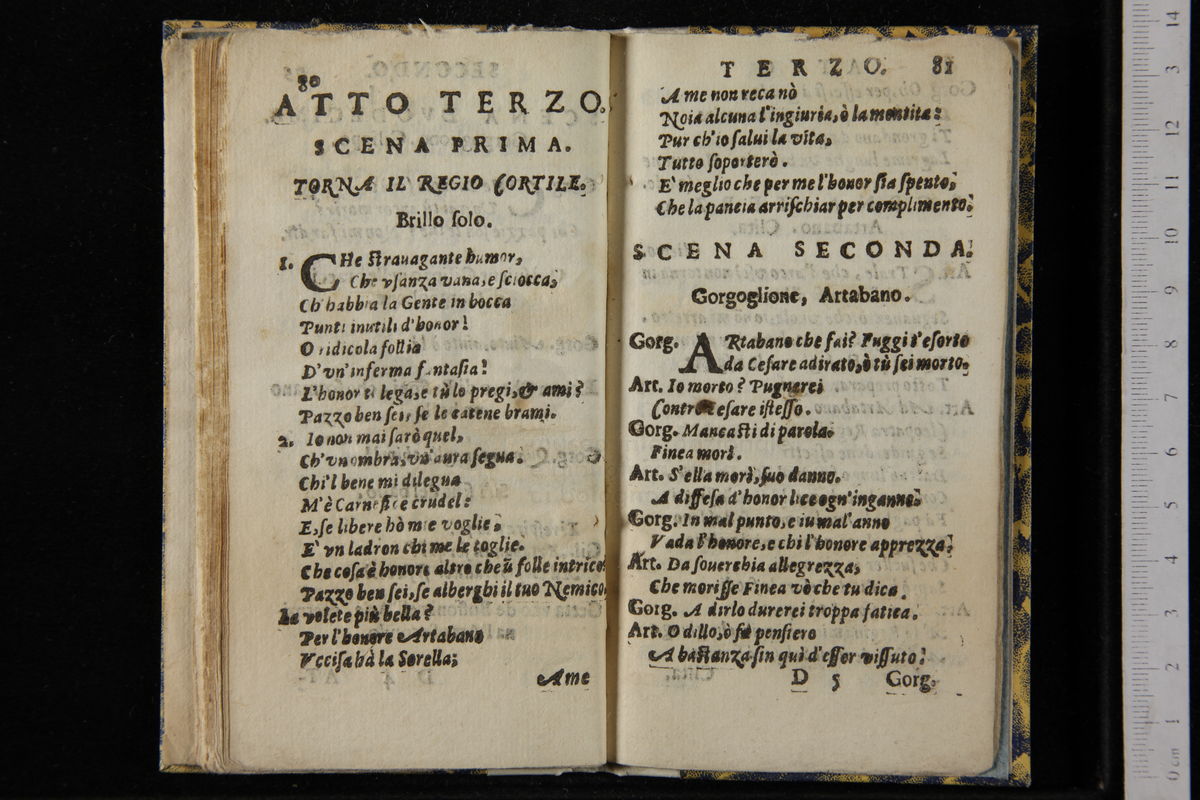 80
ATTO TERZO.
SCENA PRIMA.
TORNA IL REGIO CORTILE.
Brillo ſolo.
1. CHe ſtrauagante humor,
Che vſanza vana, e ſciocca,
Ch'habbia la Gente in bocca
Punti inutili d'honor!
O ridicola follia
D'vn'inferma fantaſia!
L'honor ti lega, e tù lo pregi, & ami?
Pazzo ben ſei, ſe le catene brami.
2. Io non mai ſarò quel,
Ch'vn ombra, vn'aura ſegua.
Chi'l bene mi dilegua
M'è Carnefice crudel:
E, ſe libere hò mie voglie,
E' vn ladron chi me le toglie.
Che coſa è honore altro che ũ folle intrico?
Pazzo ben ſei, ſe alberghi il tuo Nemico.
La volete più bella?
Per l'honore Artabano
Vcciſa hà la Sorella;
A me
TERZO. 81
A me non reca nò
Noia alcuna l'ingiuria, ò la mentita:
Pur ch'io ſalui la vita,
Tutto ſoporterò.
E' meglio che per me l'honor ſia ſpento,
Che la pancia arriſchiar per complimento.
SCENA SECONDA.
Gorgoglione, Artabano.
Gorg. ARtabano che fai? Fuggi t'eſorto
da Ceſare adirato, ò tù ſei morto.
Art. Io morto? Pugnerei
Contro Ceſare iſteſſo.
Gorg. Mancaſti di parola.
Finea morì.
Art. S'ella morì, ſuo danno.
A diffeſa d'honor lice ogn'inganno.
Gorg. In mal punto, e in mal'anno
Vada l'honore, e chi l'honore apprezza!
Art. Da ſouerchia allegrezza,
Che moriſſe Finea vò che tu dica.
Gorg. A dirlo durerei troppa fatica.
Art. O dillo, ò fà penſiero
A baſtanza ſin quì d'eſſer viſſuto!
D 5 Gorg.